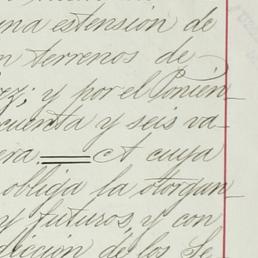 una extensión de
n terrenos de
rez; y por el Ponien-
cuenta y seis va-
era. A cuya
obliga la otorgan-
y futuros, y con
dicción de los Se-